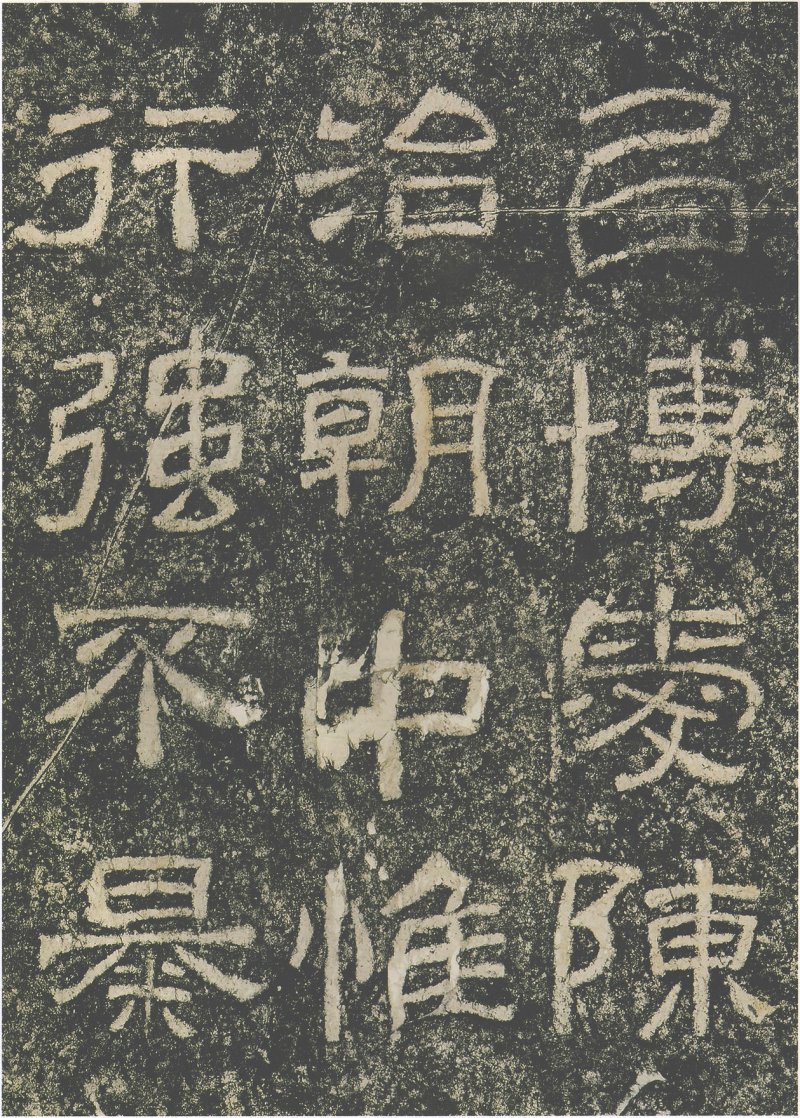 㠯博愛陳
治朝中惟
行強不暴